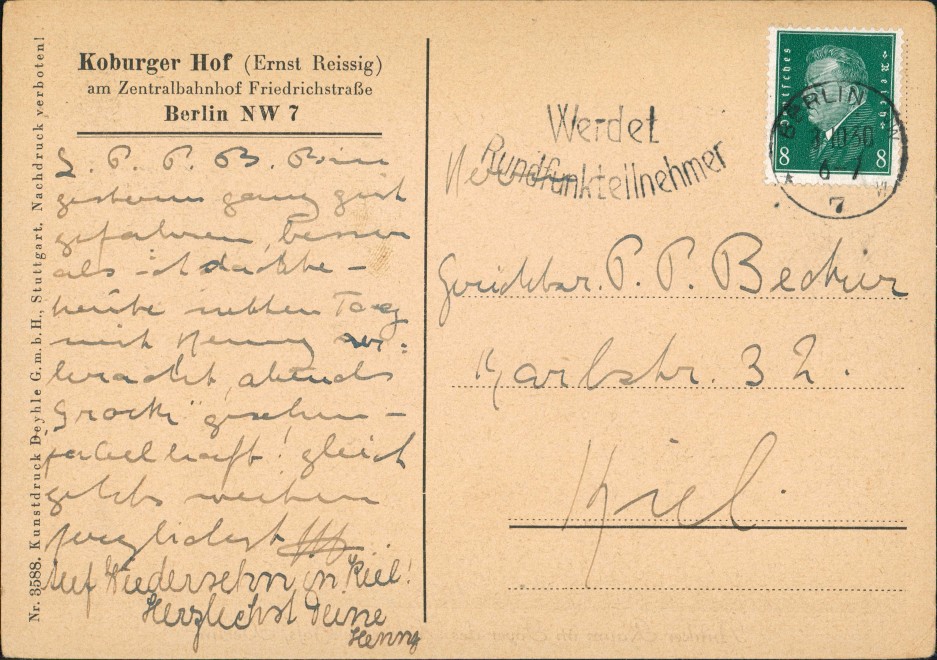 Koburger Hof (Ernst Reissig)
am Zentralbahnhof Friedrichstraße
Berlin NW 7
Nr. 3588. Kunstdruck Deyhle G.m.b.H., Stuttgart, Nachdruck verboten!
L. P. P. B. Bin
gestern ganz gut
gefahren, besser
als ich dachte –
heute netten Tag
mit Henny ver:
bracht, abends
"Grock" gesehen –
fabelhaft! gleich
geht's weiter
Auf Wiedersehn in Kiel!
Herzlichst Deine
Henny
Werdet
Rundfunkteilnehmer
Deutsches Reich
8 8
BERLIN NW
3.10.30
6-7
7
P. P. Becker
Karlstr. 32.
Kiel.